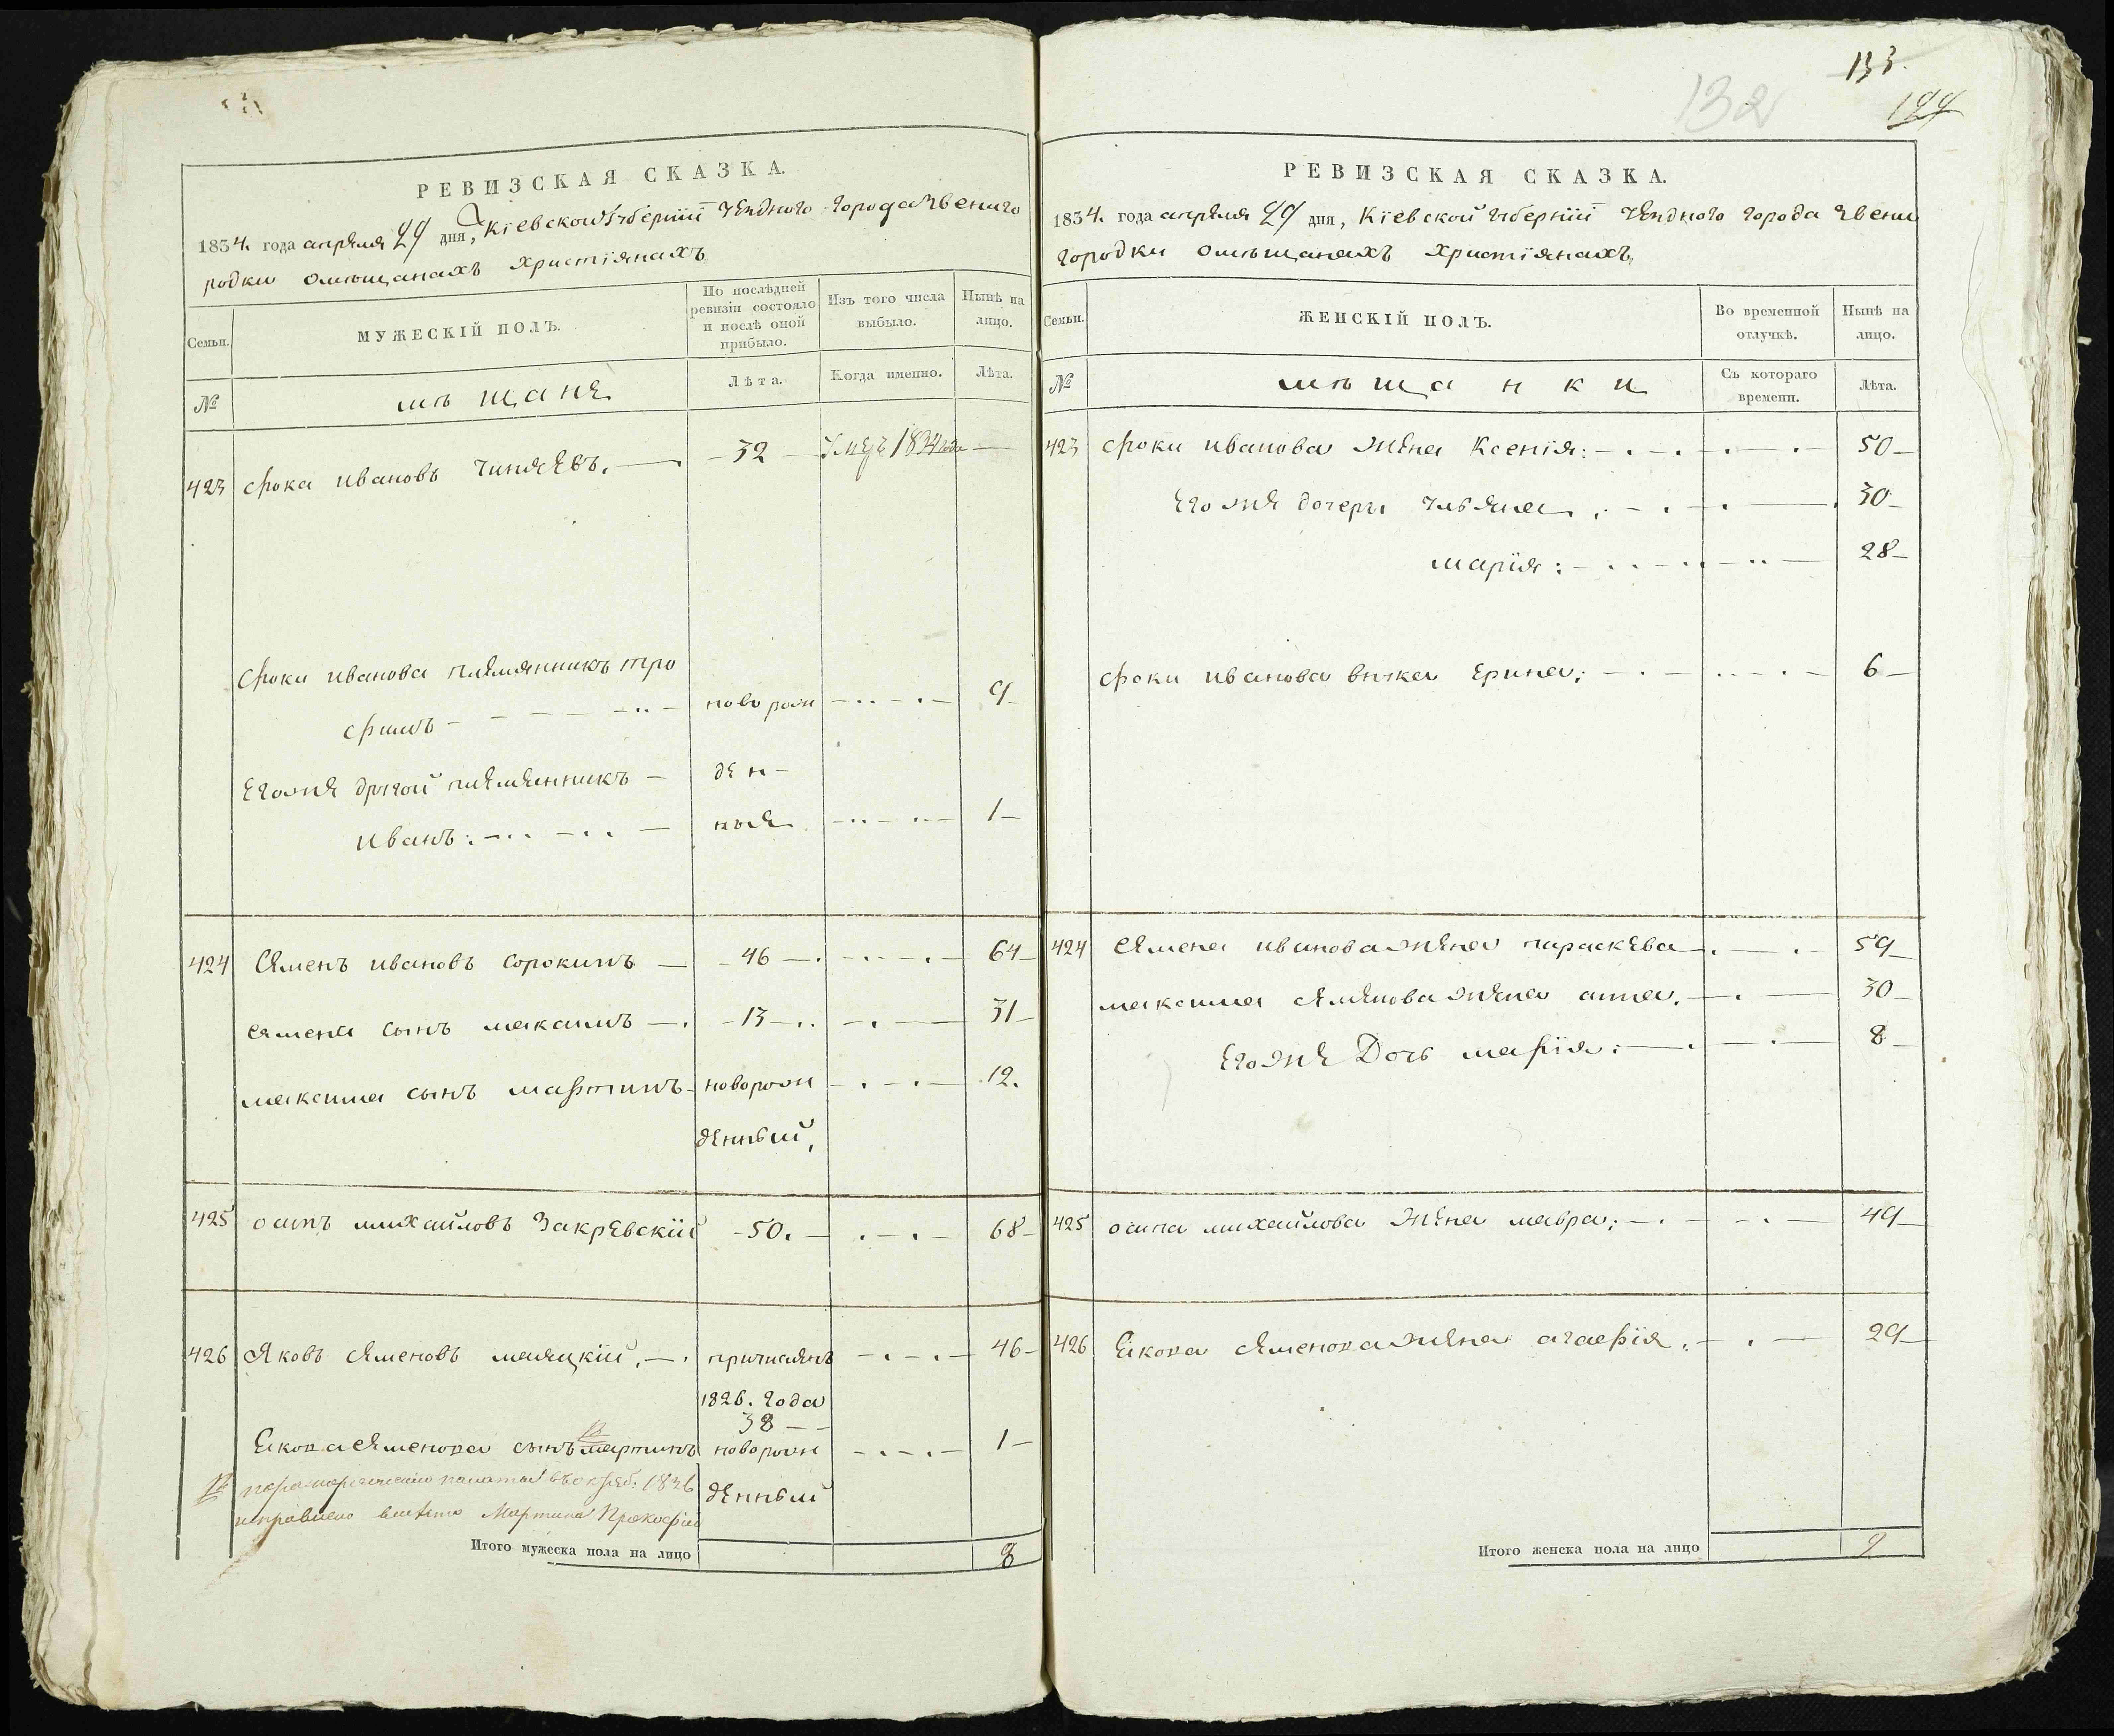 РЕВИЗСКАЯ СКАЗКА.
1834. года апреля 29 дня, Кіевской Губерніи уездного города Звениго
родки о мѣщанахъ христіянахъ
Семьи.
МУЖЕСКІЙ ПОЛЪ.
По послѣдней ревизіи состояло и послѣ оной прибыло.
Изъ того числа выбыло.
Нынѣ на лицо.
№
мѣщане
Лѣта.
Когда именно.
Лѣта.
423 фока ивановъ — 32 — 1834 года —
фоки иванова племянникъ тро новорож 9
фимъ
его же другой племянникъ — ден-
иванъ: ные 1
424 Семенъ ивановъ сорокинъ — 46 — 64
семена сынъ максимъ — 13 — 31
максима сынъ мартинъ новорож 12.
денный,
425 осипъ михайловъ Закревскій 50. 68
426 Яковъ семеновъ маяцкій. причисленъ 46
1826. года
38
Екова семенова сынъ мартинъ новорож 1
денный
1836
исправлено вместо Мартина Прокофий
Итого мужеска пола на лицо 8
133.
132
РЕВИЗСКАЯ СКАЗКА.
1834. года апреля 29 дня, Кіевской губерніи уездного города Звени
городки о мѣщанахъ христіянахъ,
Семьи.
ЖЕНСКІЙ ПОЛЪ.
Во временной отлучкѣ.
Нынѣ на лицо.
№
мѣщанки
Съ котораго времени.
Лѣта.
423 фоки иванова жена Ксенія: 50
его же дочери ульяна 30
марія: 28
фоки иванова внука ерина; 6
424 семена иванова жена параскева 59
максима семенова жена анна. 30
его же Дочь марія: 8
425 осипа михайлова жена мавра; 49
426 Екова семенова жена агафія. 29
Итого женска пола на лицо 9